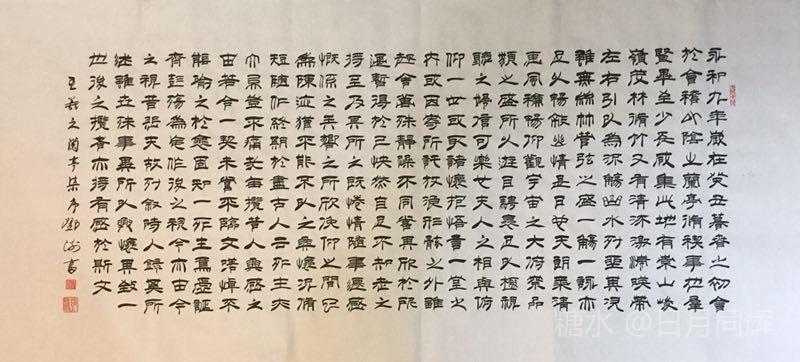 永和九年歲在癸丑暮春之初會
於會稽山陰之蘭亭脩稧事也羣
賢畢至少長咸集此地有崇山峻
嶺茂林脩竹又有清流激湍映帶
左右引以為流觴曲水列坐其次
雖無絲竹管弦之盛一觴一詠亦
足以暢敘幽情是日也天朗氣清
惠風和暢仰觀宇宙之大俯察品
類之盛所以遊目騁懷足以極視
聽之娛信可樂也夫人之相與俯
仰一世或取諸懷抱悟言一室之
內或因寄所託放浪形骸之外雖
趣舍萬殊靜躁不同當其欣於所
遇暫得於己快然自足不知老之
將至及其所之既惓情隨事遷感
慨係之矣向之所欣俛仰之間已
為陳迹猶不能不以之興懷況脩
短隨化終期於盡古人云死生亦
大矣豈不痛哉每攬昔人興感之
由若合一契未嘗不臨文嗟悼不
能喻之於懷固知一死生為虛誕
齊彭殤為妄作後之視今亦由今
之視昔悲夫故列敘時人錄其所
述雖世殊事異所以興懷其致一
也後之攬者亦將有感於斯文
王羲之蘭亭集序 書
糖水 @日月同辉